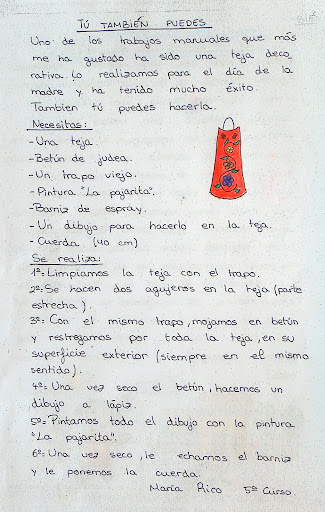 TÚ TAMBIÉN PUEDES
Uno de los trabajos manuales que más
me ha gustado ha sido una teja deco
rativa. Lo realizamos para el día de la
madre y ha tenido mucho éxito.
Tambien tú puedes hacerla.
Necesitas:
-Una teja.
-Betún de judea.
-Un trapo viejo.
-Pintura "La pajarita".
-Barniz de espray.
-Un dibujo para hacerlo en la teja.
-Cuerda (40 cm)
Se realiza:
1º=Limpiamos la teja con el trapo.
2º=Se hacen dos agujeros en la teja (parte
estrecha).
3º= Con el mismo trapo, mojamos en betún
y restregamos por toda la teja, en su
superficie exterior (siempre en el mismo
sentido).
4º=Una vez seco el betún, hacemos un
dibujo a lápiz.
5º=Pintamos todo el dibujo con la pintura
"La pajarita".
6º=Una vez seco, le echamos el barniz
y le ponemos la cuerda.
María Rico 5º Curso.